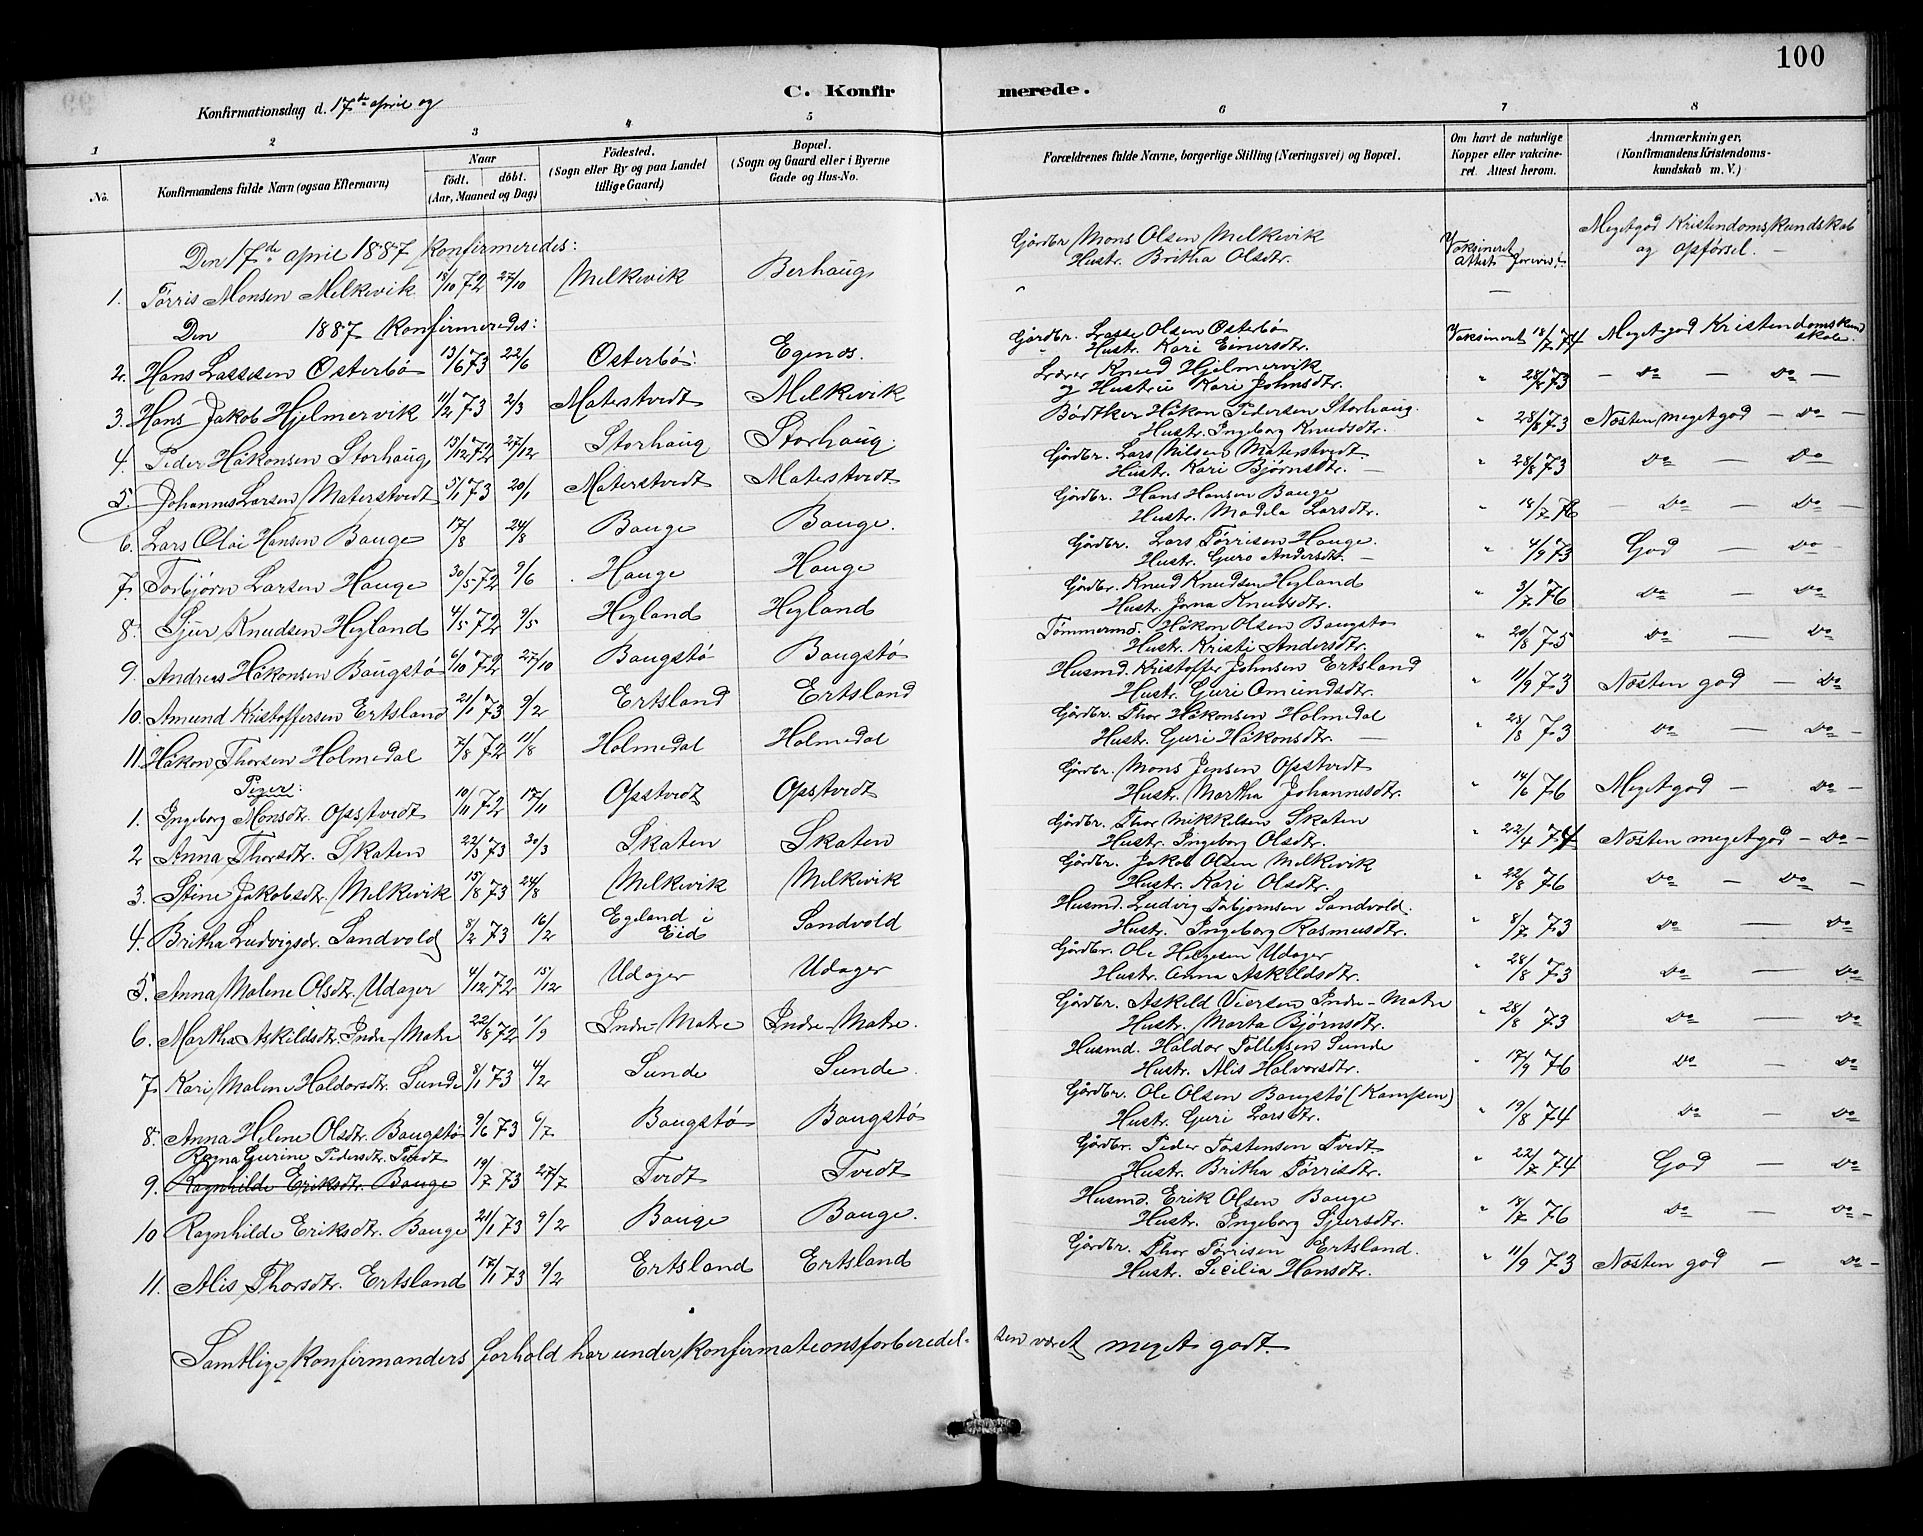 100
C. Konfirmerede.
Konfirmationsdag d. 17de april og
1 2 3 4 5 6 7 8
No. Konfirmandens fulde Navn (ogsaa Efternavn) Naar født. døbt. (Aar, Maaned og Dag) Fødested. (Sogn eller By og paa Landet tillige Gaard) Bopæl. (Sogn og Gaard eller i Byerne Gade og Hus-No. Forældrenes fulde Navne, borgerlige Stilling (Næringsvei) og Bopæl. Om havt de naturlige Kopper eller vakcineret. Attest herom. Anmærkninger, (Konfirmandens Kristendomskundskab m. V.)
Den 17de april 1887 konfirmeredes:
1. Tørris Monsen Melkevik 18/10 72 27/10 Melkevik Berhaug Gårdbr. Mons Olsen Melkevik Hustr. Britha Olsdtr. Vaksineret Attest forevist. Megetgod Kristendomskundskab og opførsel. —
Den 1887 Konfirmeredes:
2. Hans Lassesen Østerbø 13/6 73 22/6 Østerbø Egends. Gårdbr. Lasse Olsen Østerbø Hustr. Kari Einersdtr. Vaksineret 18/7 74 Megetgod Kristendomskundskab.
3. Hans Jakob Hjelmervik 11/2 73 2/3 Materstvedt Melkevik Lærer Knud Hjelmervik og Hustru Kari Johnsdtr. " 28/8 73 — do — do —
4. Peder Håkonsen Storhaug 15/12 72 27/12 Storhaug Storhaug. Bødtker Håkon Pedersen Storhaug. Hustr. Ingeborg Knudsdtr. " 28/8 73 Næsten megetgod — do —
5. Johannes Larsen Materstvedt 5/1 73 20/1 Materstvedt Materstvedt Gårdbr. Lars Nilsen Materstvedt Hustr. Kari Bjørnsdtr. — " 28/8 73 do — do
6. Lars Olai Hansen Bauge 17/8 24/8 Bauge Bauge. Gårdbr. Hans Hansen Bauge Hustr. Madela Larsdtr. " 18/7 76 — do — do
7. Torbjørn Larsen Hauge 30/5 72 9/6 Hauge Hauge Gårdbr. Lars Tørrisen Hauge. Hustr. Guro Andersdtr. — " 4/9 73 God — do —
8. Sjur Knudsen Hegland 4/5 72 9/5 Hegland Hegland Gårdbr. Knud Knudsen Hegland Hustr. Jorna Knudsdtr. " 3/7 76 do — do
9. Andreas Håkonsen Baugstø 6/10 72 27/10 Baugstø Baugstø Tømmermd. Håkon Olsen Baugstø Hustr. Kristi Andersdtr. " 20/8 75 do — do
10. Amund Kristoffersen Ertsland 21/1 73 9/2 Ertsland Ertsland Husmd. Kristoffer Johnsen Ertsland Hustr. Guri Omundsdtr. " 11/9 73 Næsten god — do
11. Håkon Thorsen Holmedal 7/8 72 11/8 Holmedal Holmedal Gårdbr. Thor Håkonsen Holmedal Hustr. Guri Håkonsdtr. — " 28/8 73 do — do —
Piger:
1. Ingeborg Monsdtr. Opstvedt 10/11 72 17/11 Opstvedt Opstvedt Gårdbr. Mons Jensen Opstvedt Hustr. Martha Johannesdtr. " 14/6 76 Megetgod — do —
2 Anna Thorsdtr. Skaten 22/3 73 30/3 Skaten Skaten Gårdbr. Thor Mikkelsen Skaten Hustr. Ingeborg Olsdtr. " 22/4 74 Næsten megetgod — do —
3. Stine Jakobsdtr. Melkevik 15/8 73 24/8 Melkevik Melkevik Gårdbr. Jakob Olsen Melkevik Hustr. Kari Olsdtr. " 22/8 76 do — do —
4. Britha Ludvigsdr. Sandvold 8/2 73 16/2 Egeland i Eid Sandvold Husmd. Ludvig Torbjørnsen Sandvold. Hustr. Ingeborg Rasmusdtr. " 8/7 73 do — do
5. Anna Malene Olsdtr. Udager 4/12 72 15/12 Udager Udager Gårdbr. Ole Helgesen Udager Hustr. Anna Askildsdtr. " 28/8 73 do — do
6. Martha Askildsdtr. Indre-Matre 22/8 72 1/9 Indre-Matre Indre-Matre. Gårdbr. Askild Viersen Indre-Matre Hustr. Marta Bjørnsdtr. " 28/8 73 do — do
7 Kari Malene Haldorsdtr. Sunde 8/1 73 4/2 Sunde Sunde. Husmd. Haldor Tollefsen Sunde Hustr. Alis Halvorsdtr. " 17/9 76 do — do
8. Anna Helene Olsdtr. Baugstø 9/6 73 6/7 Baugstø Baugstø Gårdbr. Ole Olsen Baugstø (Kampen) Hustr. Guri Larsdtr. " 19/8 74 do — do
9. Ragna Gurine Pedersdtr. Tvedt Ragnhilde Eriksdtr. Bauge 19/7 73 27/7 Tvedt Tvedt Gårdbr. Peder Tostensen Tvedt Hustr. Britha Tørrisdtr. " 22/7 74 God — do
10 Ragnhilde Eriksdtr. Bauge 21/1 73 9/2 Bauge Bauge. Husmd. Erik Olsen Bauge Hustr. Ingeborg Sjursdtr. " 18/7 76 do — do —
11. Alis Thorsdtr. Ertsland 17/1 73 9/2 Ertsland Ertsland Gårdbr. Thor Tørrisen Ertsland. Hustr. Sicilia Hansdtr. " 11/9 73 Næsten god — do —
Samtlige konfirmanders forhold har under konfirmationsforberedelsen været meget godt.